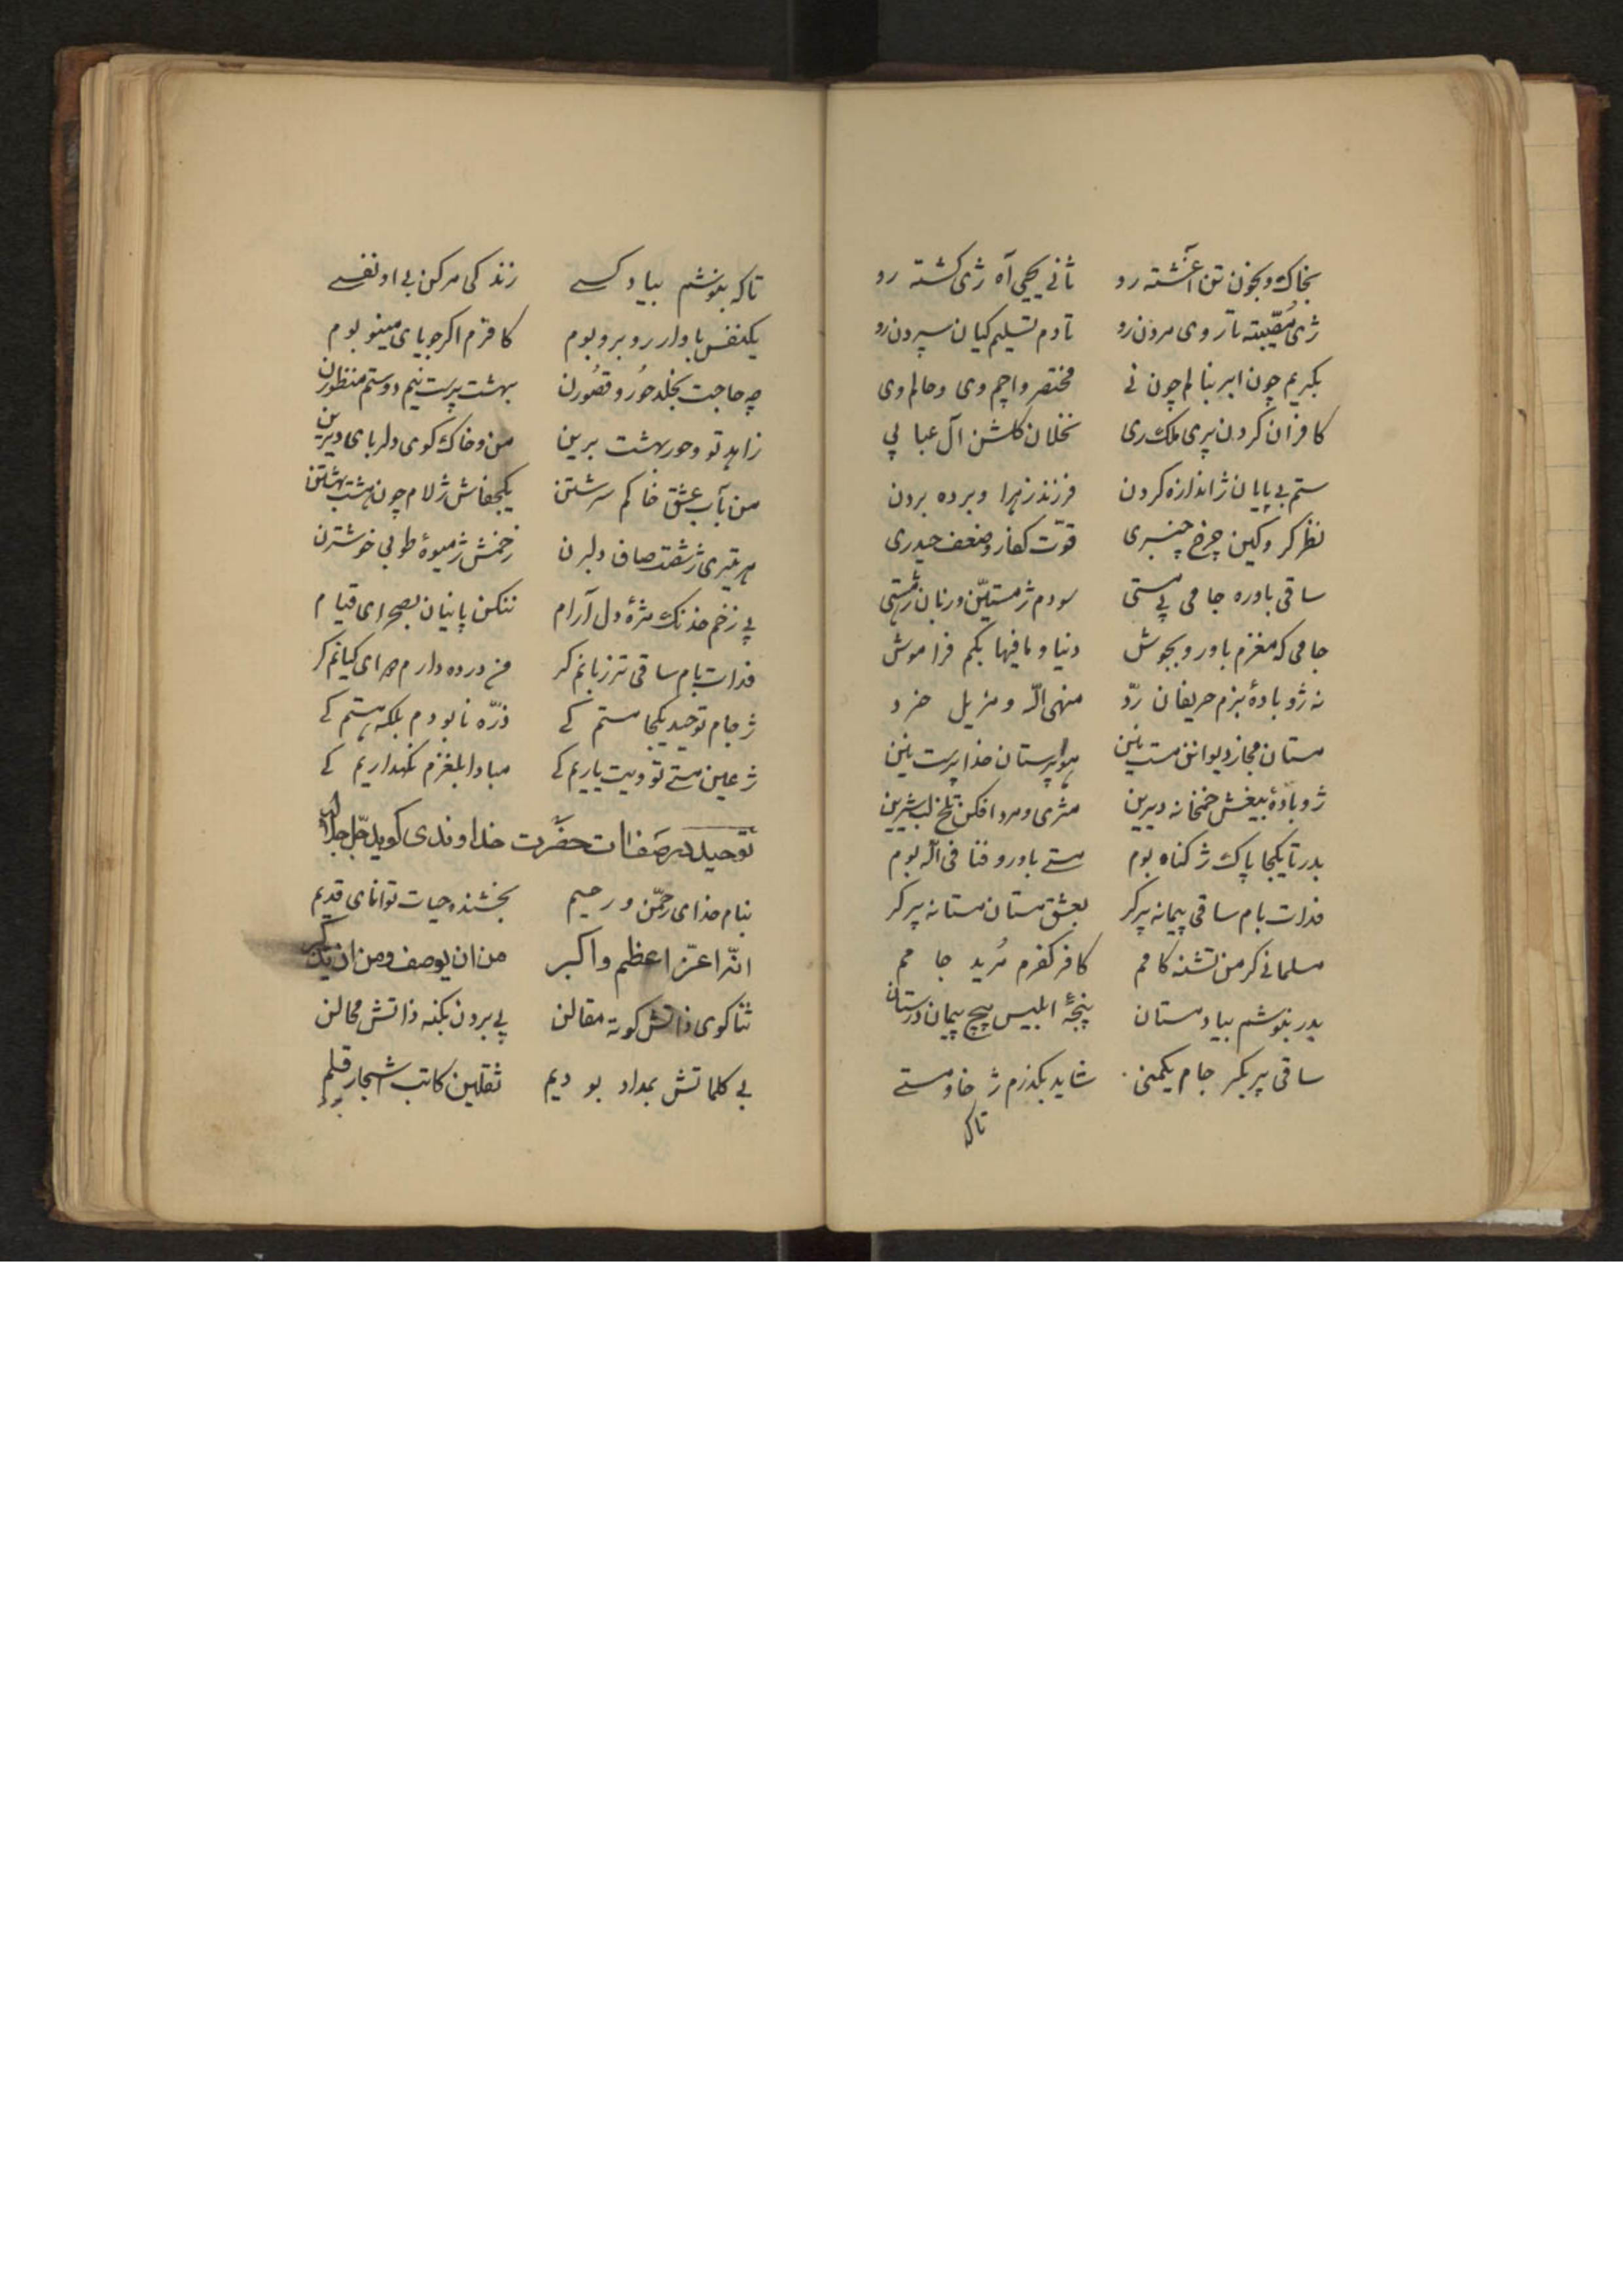 بخاک و بخون تن آغشته رو ثانی یحیی آه ژی کشته رو
ژی مصیبته تا روی مردن رو تا دم تسلیم کیان سپردن رو
بکریم چون ابر بنالم چون نی مختصر واچم وی وحالم وی
کافران کردن پری ملک ری نخلان کلشن آل عبا پی
ستم بی پایان ژاندازه کردن فرزند زهرا و برده بردن
نظر کر و کین چرخ چنبری قوت کفار و ضعف حیدری
ساقی باوره جامی پی مستی سودم ژ مستین و زیان ژ هستی
جامی که مغزم باورو بجوش دنیا و مافیها بکم فراموش
نه ژو بادهٔ بزم حریفان رد منهی اله و مزیل خرد
مستان مجاز دیوانن مست نین هواپرستان خداپرست نین
ژو بادهٔ بیغش خمخانه دیرین مثری و مرد افکن تلخ لب شیرین
بدر تا یکجا پاک ژ کناه بوم مستے باورو فنا فی اله بوم
فدات بام ساقی پیمانه پر کر بعشق مستان مستانه پر کر
مسلمانی کر من تشنه کامم کافر کفرم مرید جامم
بدر بنوشم بیاد مستان پنجهٔ ابلیس پیچ پیمان درستان
ساقی پر بکر جام یکمنی شاید بکذرم ژ خاو مستے
تاکه
تاکه بنوشم بیاد کسے زندکی مرکن بی او نفسے
یکنفس با ولدار روبرو بوم کافرم اکر جویای مینو بوم
چه حاجت بخلد حور و قصورن بهشت پرست نیم دوستم منظورن
زاهد تو و حور بهشت برین من و خاک کوی دلربای دیرین
من بآب عشق خاکم سرشتن یکجفاش ژلام چون هشت بهشتن
هر تیری ژ شقت صاف دلبرن زخمش ژ میوهٔ طوبی خوشترن
پی زخم خدنک مژهٔ دل آرام ننکن پانیان بصحرای قیام
فدات بام ساقی تر زبانم کر من درده دارم دوای کیانم کر
ژ جام توحید یکجا مستم کے ذره نابودم بلکه هستم کے
ژ عین مستے تو ویت یاریم کے مبادا بلغزم نکهداریم کے
توحید در صفات حضرت خداوندی کوید جل جلاله
بنام خدای رحمن و رحیم بخشنده حیات توانای قدیم
الله اعز اعظم و اکبر من ان یوصف و من ان یذکر
ثناکوی ذاتش کوته مقالن پی بردن بکنه ذاتش محالن
بی کلماتش بمداد بو دیم ثقلین کاتب اشجار قلم